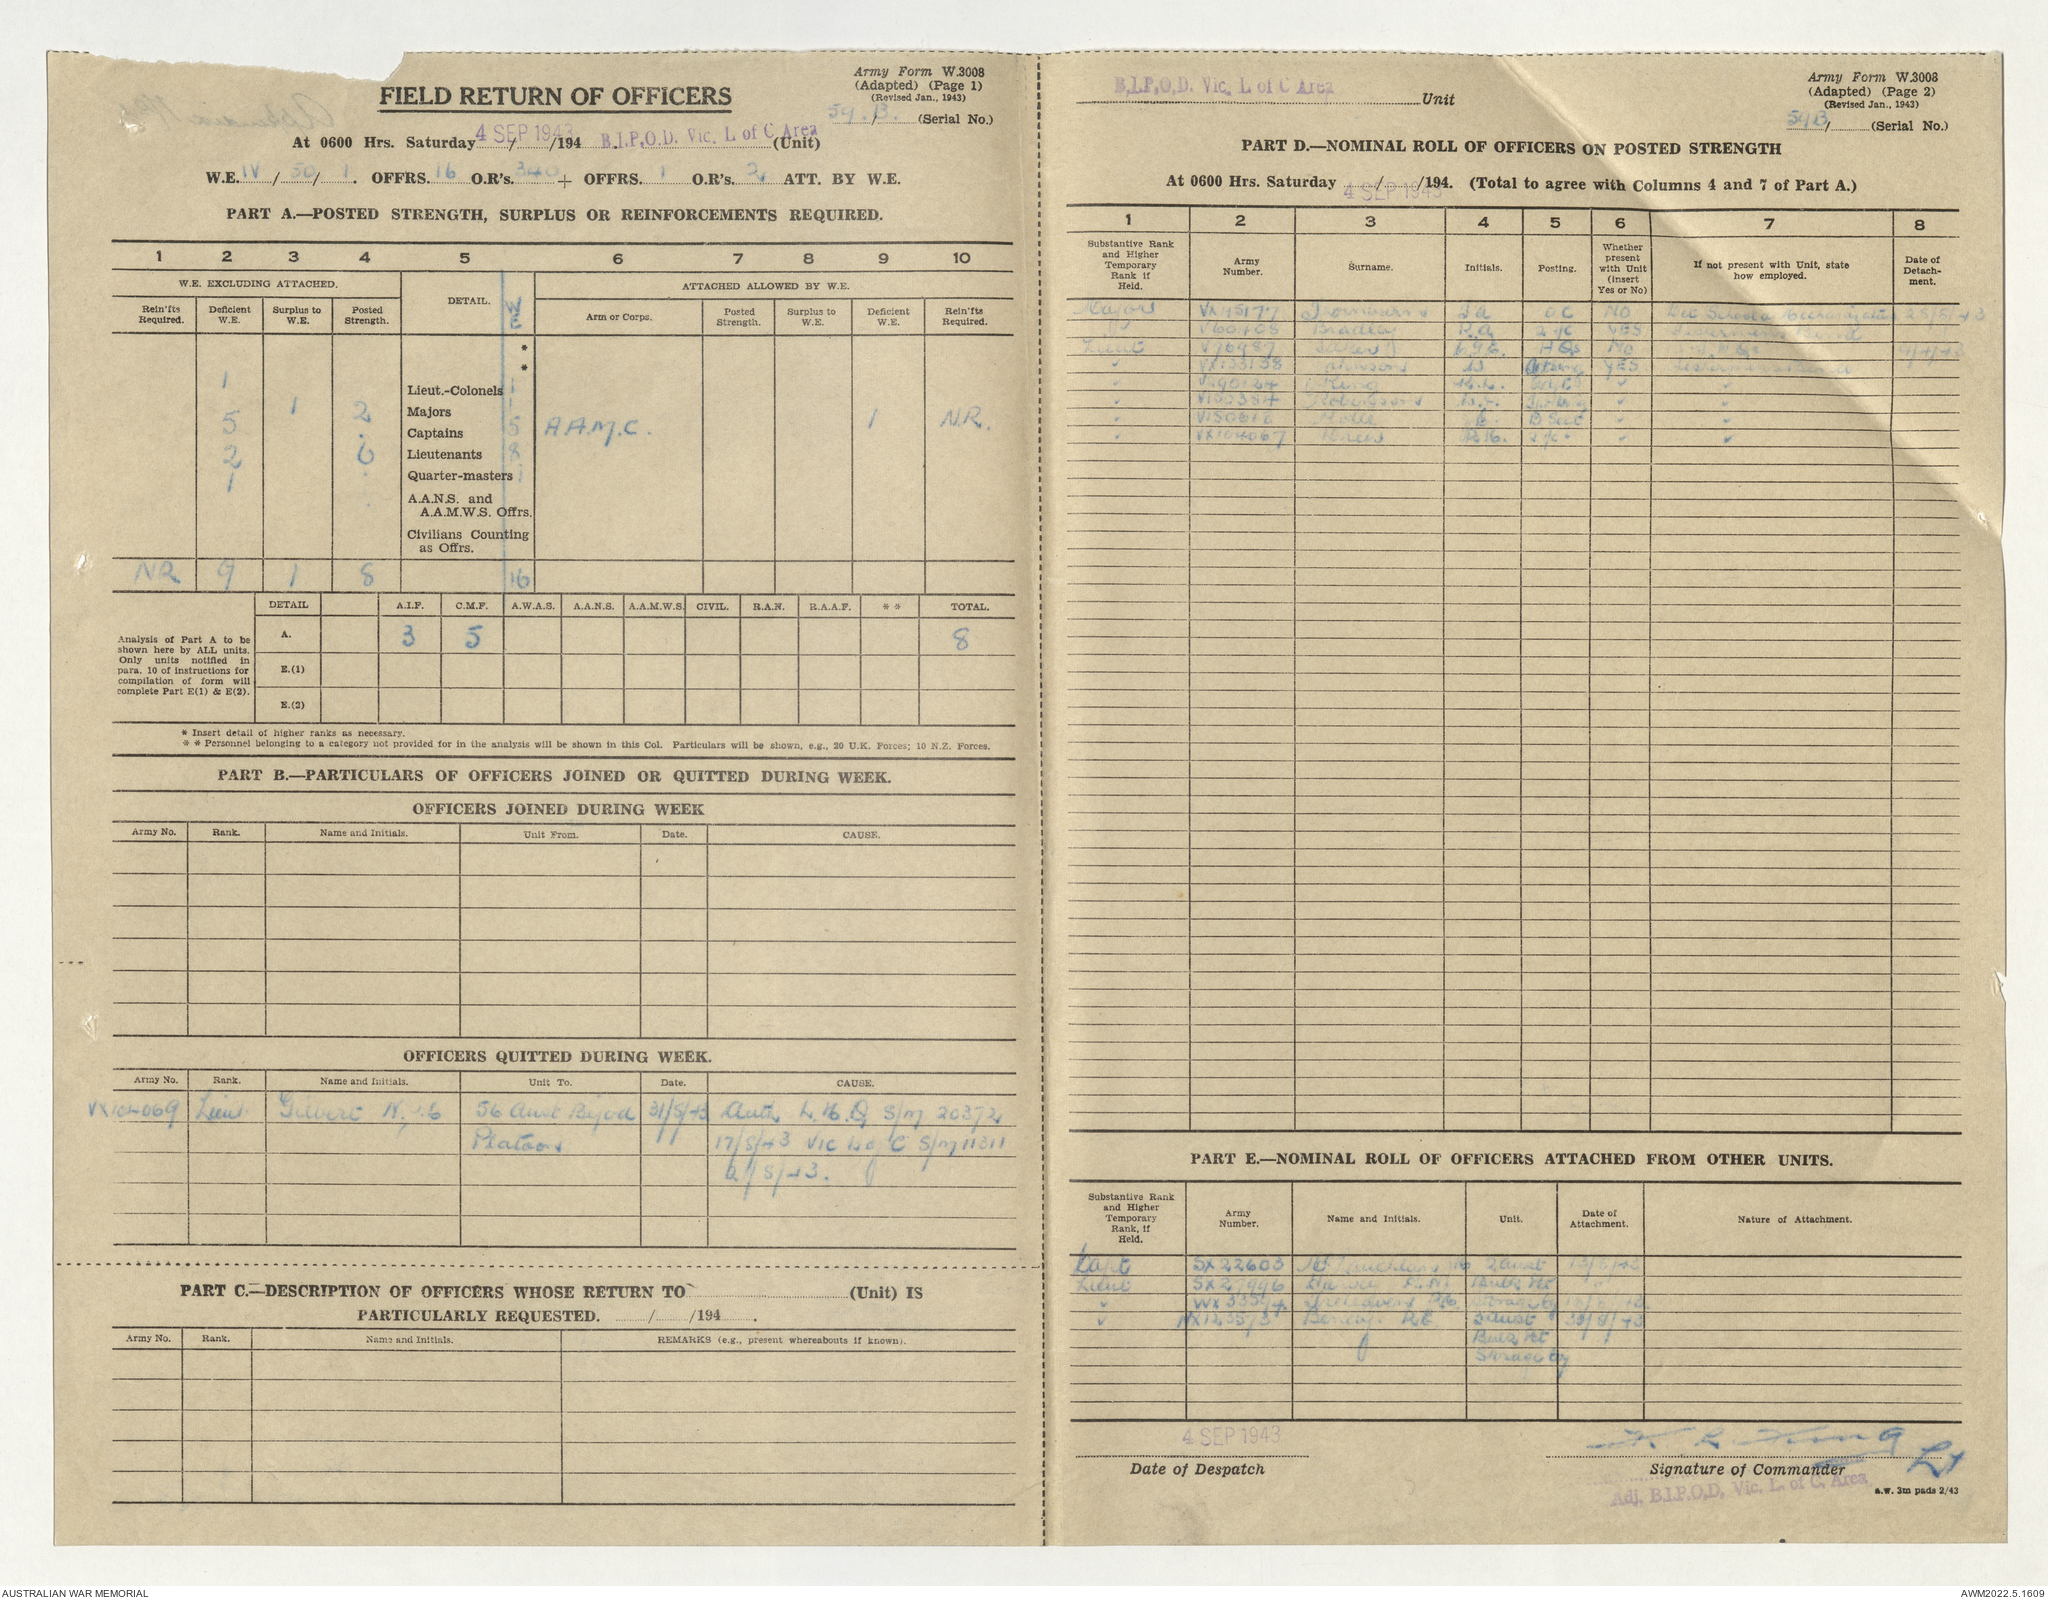 Army Form W.3008
(Adapted) (Page 1)
(Revised Jan., 1943)
59.B. / (Serial No.)
FIELD RETURN OF OFFICERS
At 0600 Hrs. Saturday 4 SEP 1943 /194 B.I.P.O.D. Vic. L of C Area (Unit)
W.E. IV / 50 / 1. OFFRS. 16 O.R's. 340 + OFFRS. 1 O.R's. 2 ATT. BY W.E.
PART A.—POSTED STRENGTH, SURPLUS OR REINFORCEMENTS REQUIRED.
1 2 3 4 5 6 7 8 9 10
W.E. EXCLUDING ATTACHED. DETAIL. WE ATTACHED ALLOWED BY W.E.
Rein'fts Required. Deficient W.E. Surplus to W.E. Posted Strength. Arm or Corps. Posted Strength. Surplus to W.E. Deficient W.E. Rein'fts Required.
*
*
1 Lieut.-Colonels 1
1 2 Majors 1
5 Captains 5 A.A.M.C. 1 N.R.
2 6 Lieutenants 8
1 Quarter-masters 1
A.A.N.S. and
A.A.M.W.S. Offrs.
Civilians Counting
as Offrs.
NR 9 1 8 16
DETAIL A.I.F. C.M.F. A.W.A.S. A.A.N.S. A.A.M.W.S. CIVIL. R.A.N. R.A.A.F. * * TOTAL.
Analysis of Part A to be
shown here by ALL units.
Only units notified in
para. 10 of instructions for
compilation of form will
complete Part E(1) & E(2).
A. 3 5 8
E.(1)
E.(2)
* Insert detail of higher ranks as necessary.
* * Personnel belonging to a category not provided for in the analysis will be shown in this Col. Particulars will be shown, e.g., 20 U.K. Forces; 10 N.Z. Forces.
PART B.—PARTICULARS OF OFFICERS JOINED OR QUITTED DURING WEEK.
OFFICERS JOINED DURING WEEK
Army No. Rank. Name and Initials. Unit From. Date. CAUSE.
OFFICERS QUITTED DURING WEEK.
Army No. Rank. Name and Initials. Unit To. Date. CAUSE.
VX104069 Lieut Gilbert 56 Aust Bipod 31/8/43 Auth L.H.Q. S/m 20372
Platoon 17/8/43 Vic L of C S/m 11311
PART C.—DESCRIPTION OF OFFICERS WHOSE RETURN TO (Unit) IS
PARTICULARLY REQUESTED. / /194 .
Army No. Rank. Name and Initials. REMARKS (e.g., present whereabouts if known).
B.I.P.O.D. Vic. L of C Area Unit
Army Form W.3008
(Adapted) (Page 2)
(Revised Jan., 1943)
59B / (Serial No.)
PART D.—NOMINAL ROLL OF OFFICERS ON POSTED STRENGTH
At 0600 Hrs. Saturday / /194. (Total to agree with Columns 4 and 7 of Part A.)
4 SEP 1943
1 2 3 4 5 6 7 8
Substantive Rank and Higher Temporary Rank if Held. Army Number. Surname. Initials. Posting. Whether present with Unit (insert Yes or No) If not present with Unit, state how employed. Date of Detach-ment.
Major OC NO
V60408 Bradley R.A 2 i/c YES
Lieut V76987 H Qs NO
VX133138 Johnson YES
King
V150384 Robertson
V150618 B Sect
VX104067
PART E.—NOMINAL ROLL OF OFFICERS ATTACHED FROM OTHER UNITS.
Substantive Rank and Higher Temporary Rank, if Held. Army Number. Name and Initials. Unit. Date of Attachment. Nature of Attachment.
Capt SX22603 2 Aust
Lieut SX27996 Bulk Pet
Storage Coy
2 Aust
Bulk Pet
Storage Coy
4 SEP 1943
Date of Despatch
K L King Lt
Signature of Commander
Adj. B.I.P.O.D. Vic. L. of C. Area
a.w. 3m pads 2/43
AUSTRALIAN WAR MEMORIAL
AWM2022.5.1609